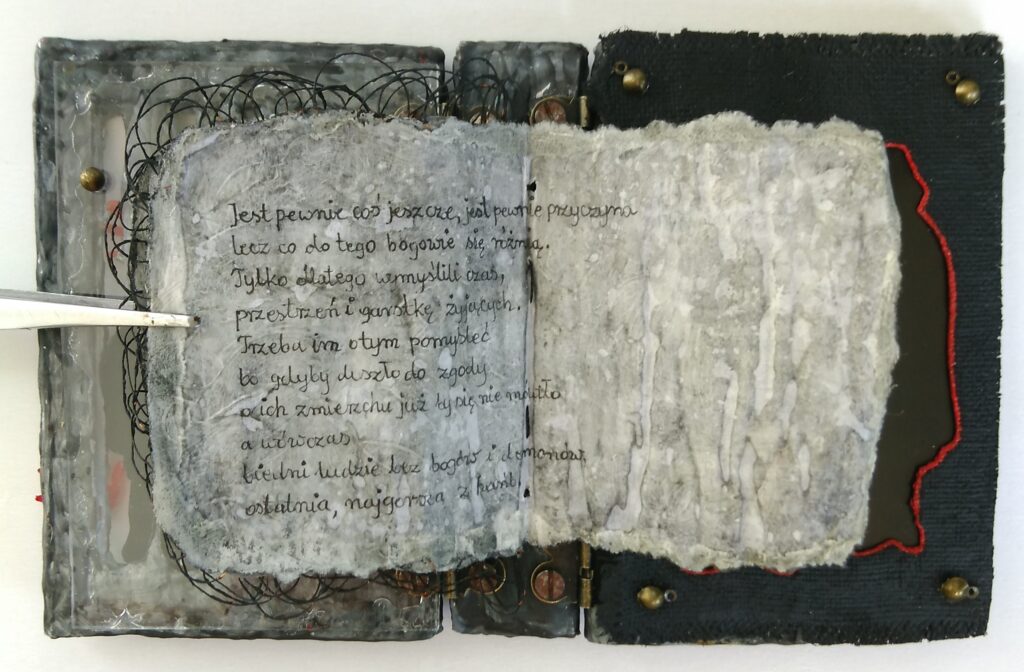 Jest pewnie coś jeszcze, jest pewnie przyczyna
lecz co do tego bogowie się różnią.
Tylko dlatego wymyślili czas,
przestrzeń i garstkę żyjących.
Trzeba im o tym pomyśleć
bo gdyby doszło do zgody
o ich zmierzchu już by się nie mówiło
a wówczas
biedni ludzie bez bogów i demonów,
ostatnia, najgorsza z hańb.